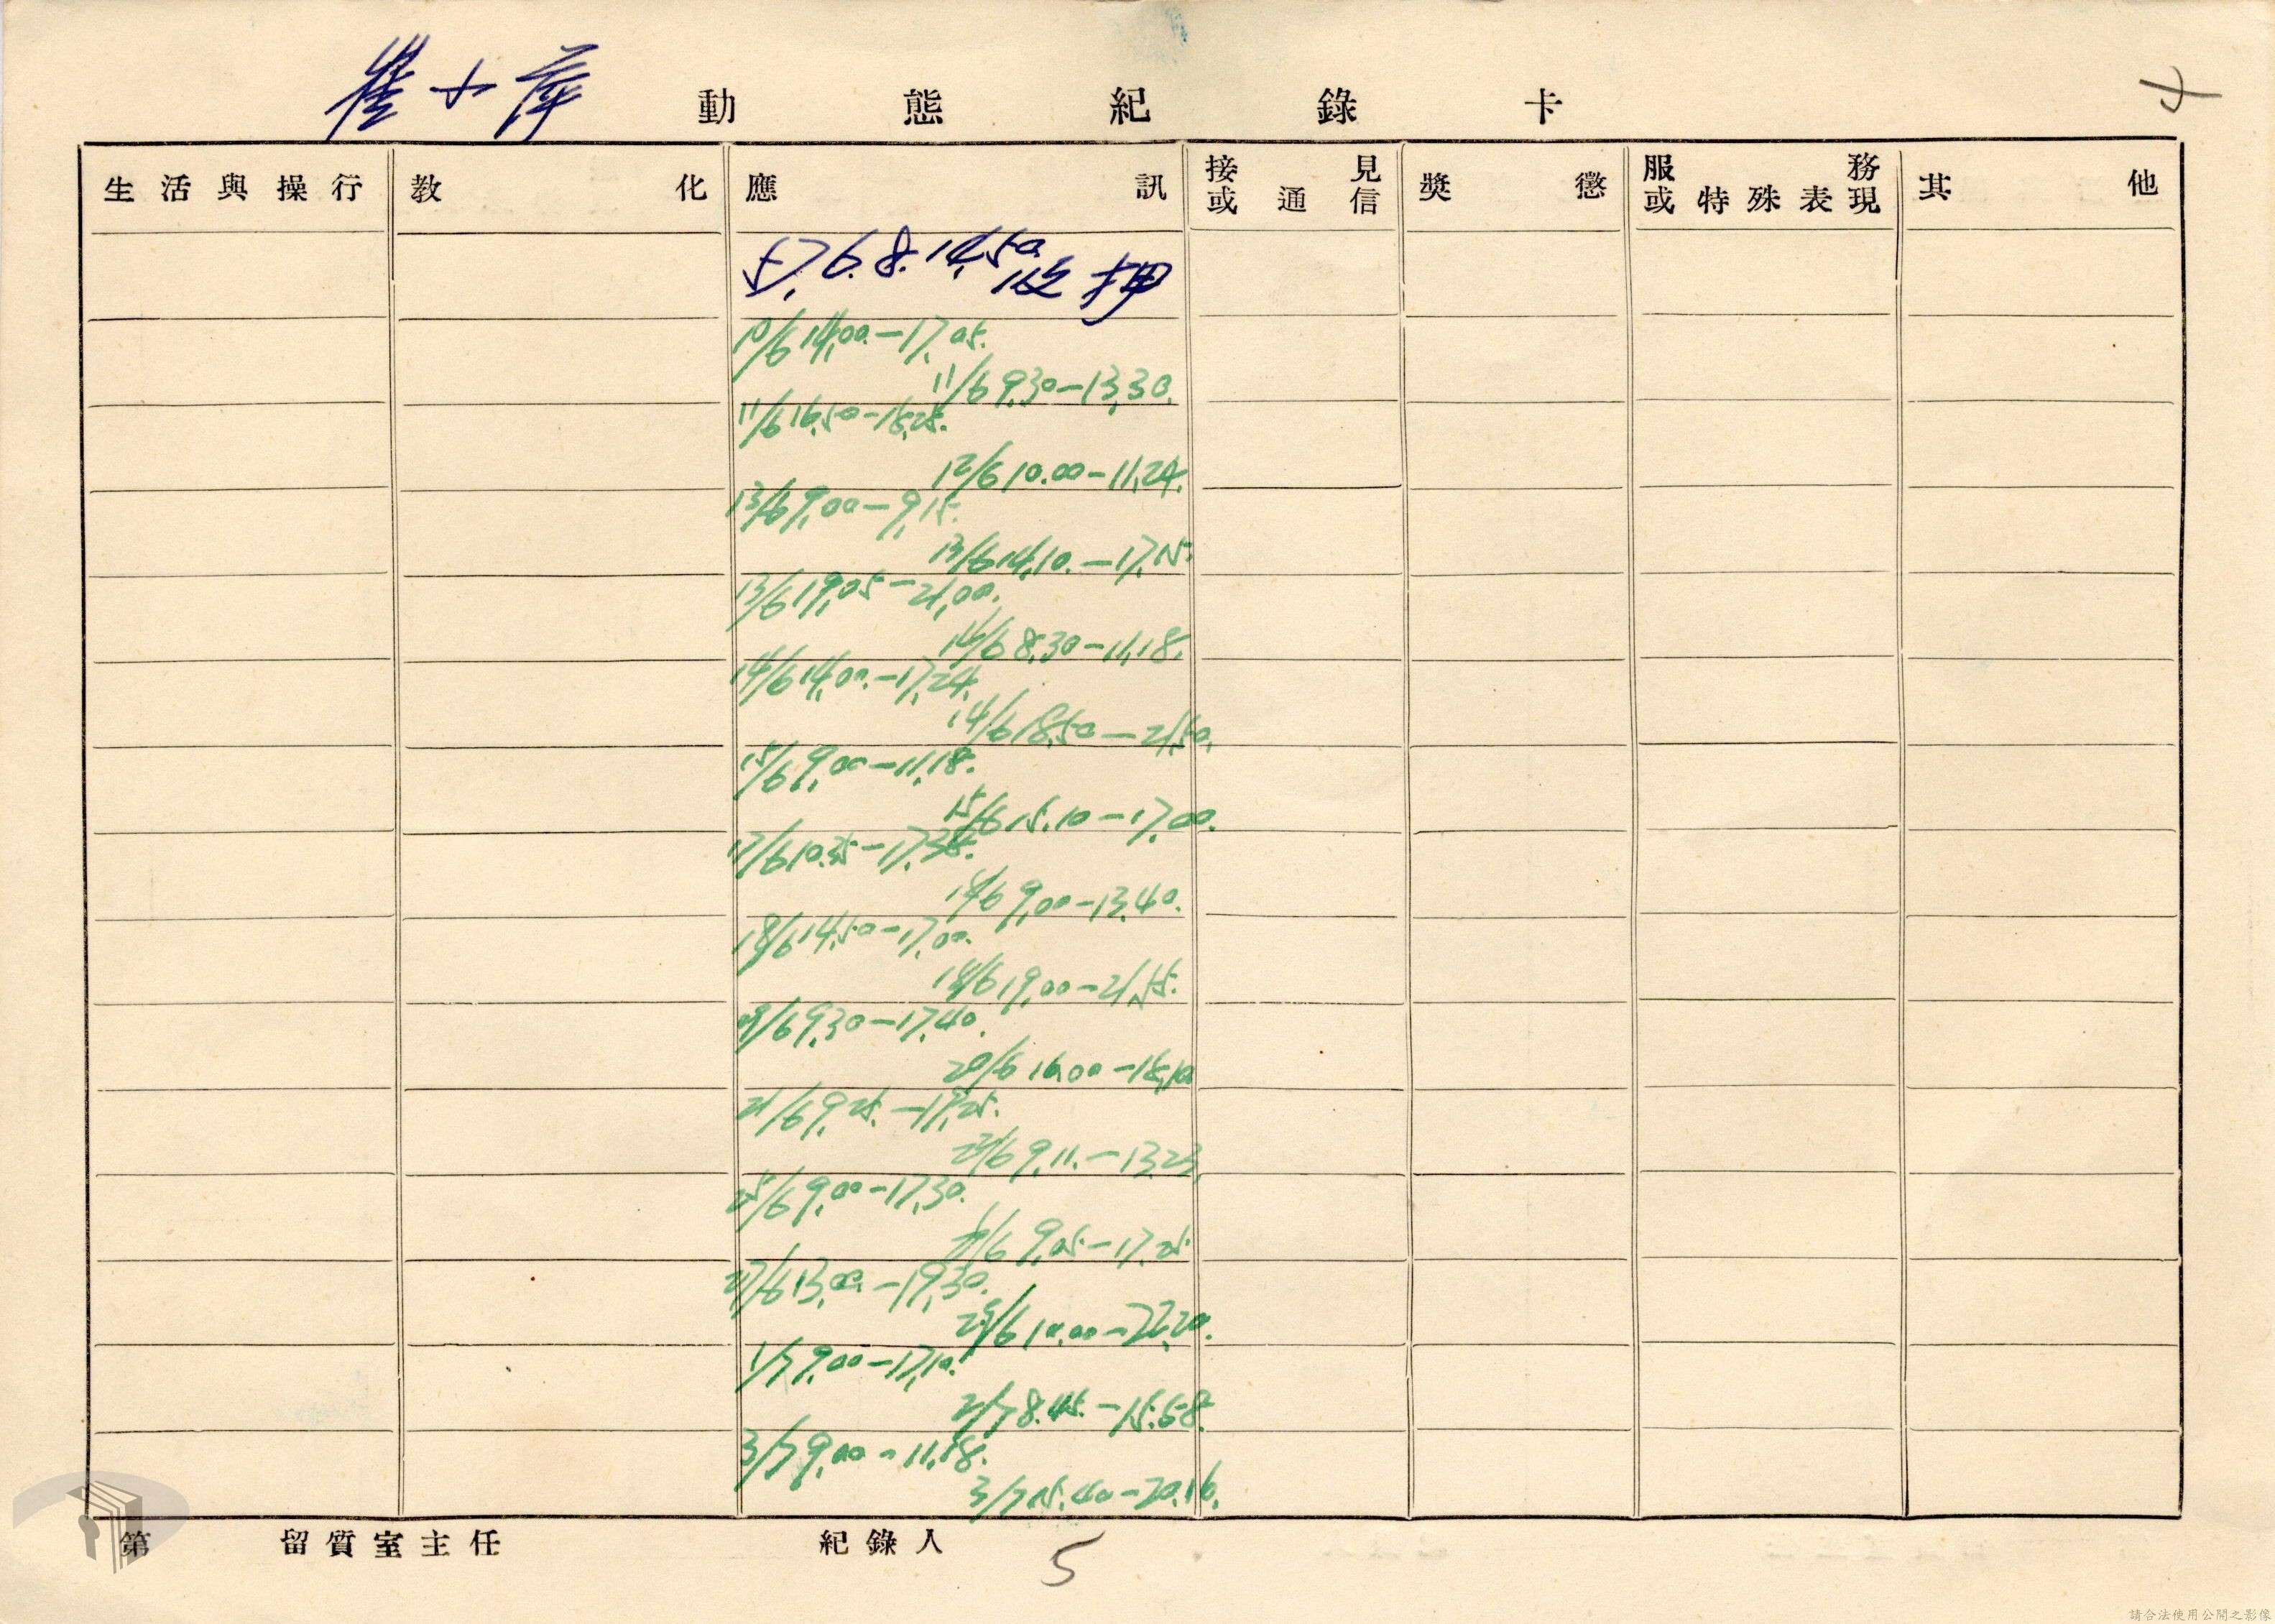 崔小萍 動態紀錄卡
生活與操行 教化 應訊 接見或通信 獎懲 服務或特殊表現 其他
57.6.8.14.50.收押
10/6 14,00.-17,05.
11/6 9,30-13,30.
11/6 16,50-18,25.
12/6 10.00-11,24.
13/6 9,00-9,15.
13/6 14,10.-17,15.
13/6 19,05-21,00.
14/6 8.30-11,18.
14/6 14,00.-17,24.
14/6 18,50-21,50.
15/6 9,00-11,18.
15/6 15.10-17,00.
17/6 10.35-17,35.
18/6 9,00-13,40.
18/6 14,50-17,00.
18/6 19,00-21,55.
19/6 9,30-17,40.
20/6 16,00-18,10
21/6 9,25.-17,25.
9,11.-13,23.
25/6 9,00-17,30.
9,05.-17,25
27/6 13,00.-19,30.
29/6 10,00-22,20.
1/7 9,00-17,10.
2/7 8.45.-15.58.
3/7 9,00-11,18.
3/7 15.40-20,16.
第 留質室主任 紀錄人
5
請合法使用公開之影像